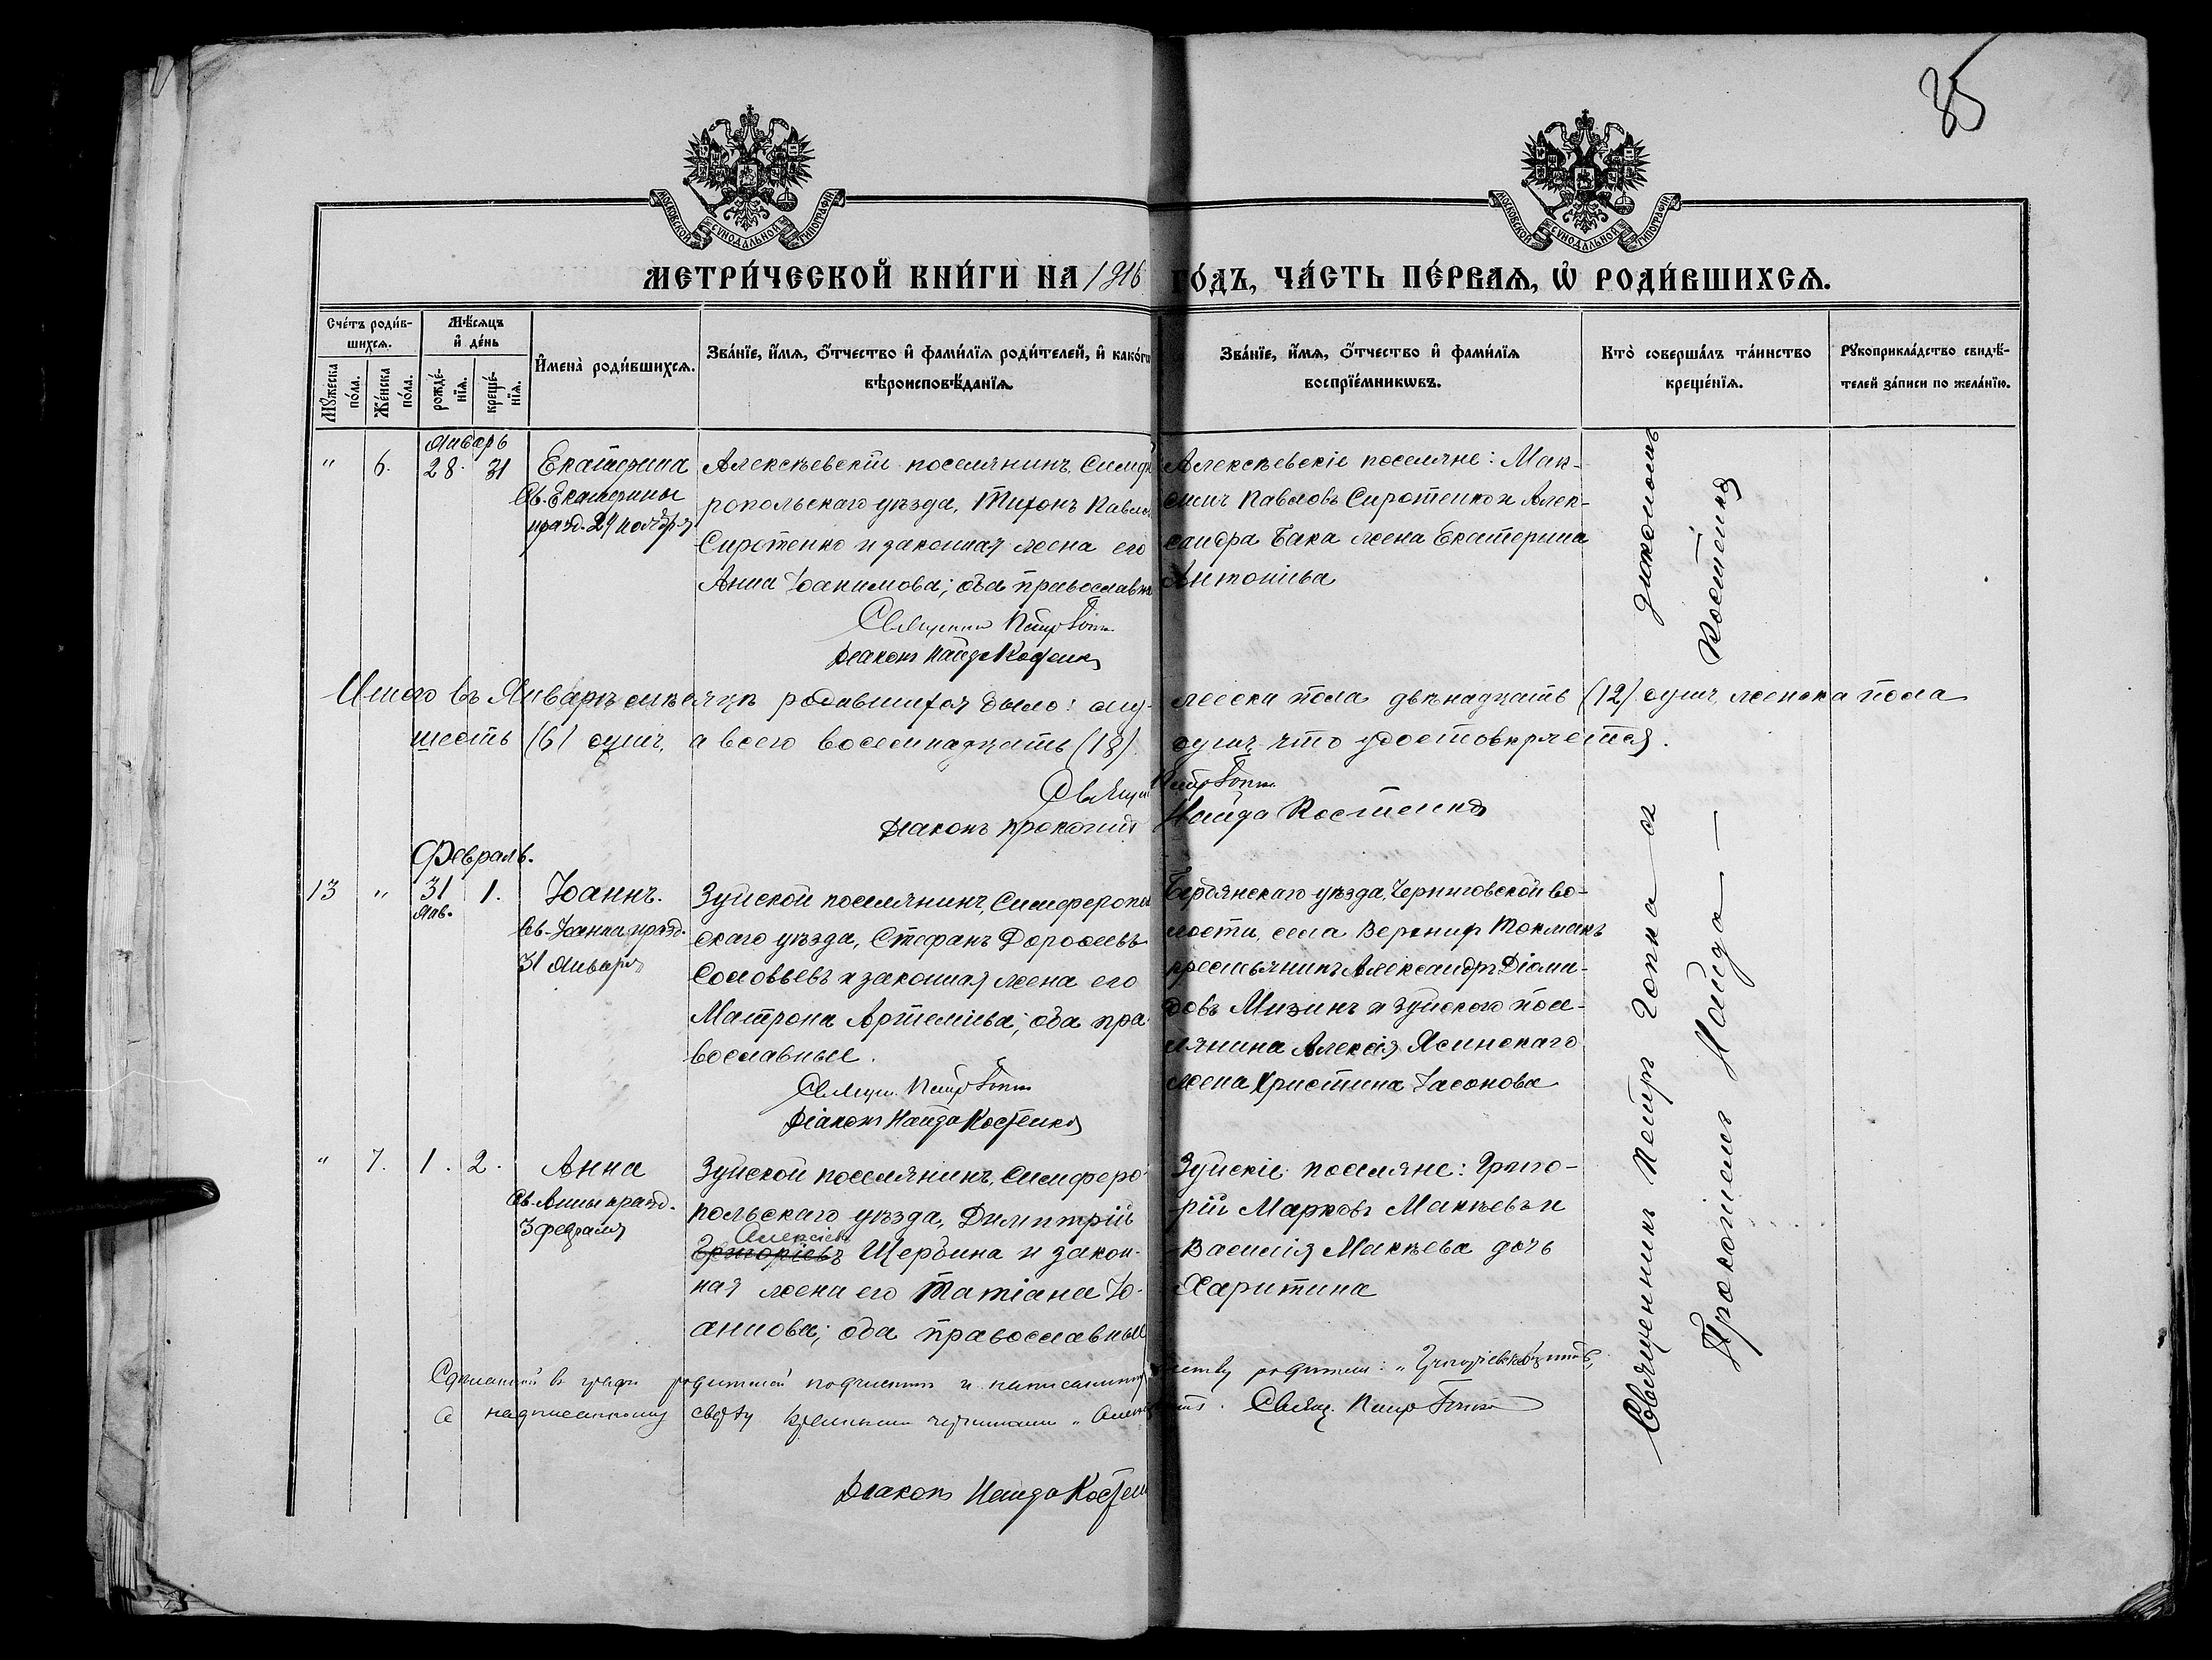 35
МОСКОВСКОЙ СѴНОДАЛЬНОЙ ТИПОГРАФІИ.
МОСКОВСКОЙ СѴНОДАЛЬНОЙ ТИПОГРАФІИ.
МЕТРИ́ЧЕСКОЙ КНИ́ГИ НА 1916 ГО́ДЪ, ЧА́СТЬ ПЕ́РВАѦ, Ѡ҆ РОДИ́ВШИХСѦ.
Сче́тъ роди́в-
шихсѧ.
Мꙋ́жеска по́ла.
Же́нска по́ла.
Мѣ́сѧцъ
и҆ де́нь
рожде́-
нїѧ.
креще́-
нїѧ.
И҆мена̀ роди́вшихсѧ.
Зва́нїе, и҆́мѧ, ѻ҆́тчество и҆ фами́лїѧ роди́телей, и҆ како́гѡ
вѣроисповѣ́данїѧ.
Зва́нїе, и҆́мѧ, ѻ҆́тчество и҆ фами́лїѧ
воспрїе́мникѡвъ.
Кто̀ соверша́лъ та́инство
креще́нїѧ.
Рꙋкоприкла́дство свидѣ́-
телей за́писи по жела́нїю.
Январь
" 6. 28. 31
Екатерина
Св. Екатерины
празд. 24 ноября
Алексѣевскій поселянинъ, Симфе
ропольскаго уѣзда, Тихонъ Павло
Сиротенко и законная жена его
Анна Іоакимова; оба православн
Священни Петръ Гопка
Діаконъ Найда Костенко
Алексѣевскіе поселяне: Мак-
симъ Павловъ Сиротенко и Алек-
сандра Бака жена Екатерина
Антоніева
Итого въ Январѣ мѣсяцѣ родившихся было: му- жеска пола двѣнадцать (12) душъ, женска пола
шесть (6) душъ, а всего восемнадцать (18) душъ что удостовѣряется.
Священ Петръ Гопка
Діаконъ Прокопій Найда Костенко
Февраль.
13 " 31 1.
Янв.
Іоаннъ.
Св. Іоанна празд.
31 Января
Зуйской поселянинъ, Симферополь
скаго уѣзда, Стефанъ Дороѳеевъ
Соловьевъ и законная жена его
Матрона Артеміева; оба пра-
вославные.
Священ. Петръ Гопка
Діаконъ Найда Костенко
Бердянскаго уѣзда, Черниговской во-
лости, села Верхній Токмакъ
крестьянинъ Александръ Діоми-
довъ Мизинъ и Зуйскаго посе-
лянина Алексія Ясинскаго
жена Христина Іасонова
" 7. 1. 2.
Анна
Св. Анны празд.
3 февраля
Зуйской поселянинъ, Симферо-
польскаго уѣзда, Димитрій
Алексіевъ
Григоріевъ Щербина и закон-
ная жена его Татіана Іо-
аннова; оба православные
Зуйскіе поселяне: Григо-
рій Марковъ Макѣевъ и
Василія Макѣева дочь
Харитина
Сдѣланной въ графѣ родителей подчисткѣ и написанному
родителя: "Григоріевъ"
а надписанному сверху
Свящ. Петръ Гопка
Діаконъ Найда Костен
Священникъ Петръ Гопка съ діакономъ
Прокопіемъ Найда — Костенко